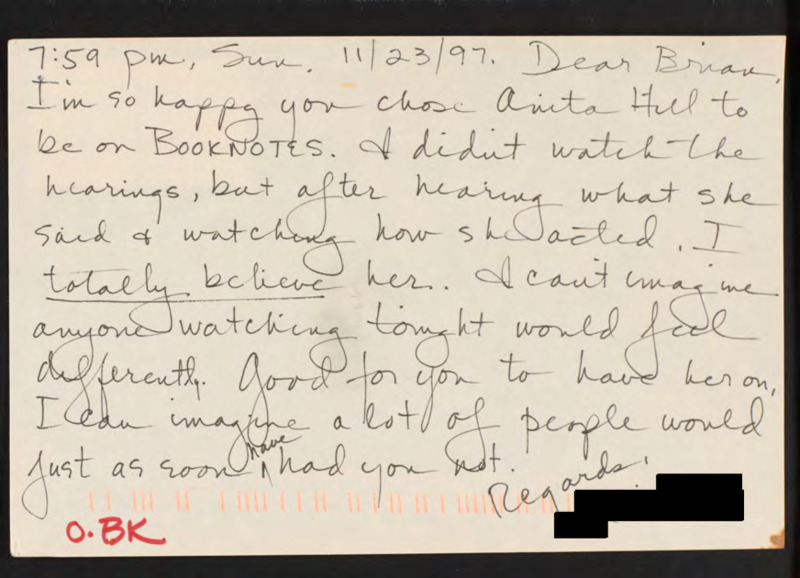 7:59 pm, Sun. 11/23/97. Dear Brian,
I'm so happy you chose Anita Hill to
be on BOOKNOTES. I didn't watch the
hearings, but after hearing what she
said & watching how she acted, I
totally believe her. I can't imagine
anyone watching tonight would feel
differently. Good for you to have her on,
I can imagine a lot of people would
just as soon have had you not.
Regards!
O.BK